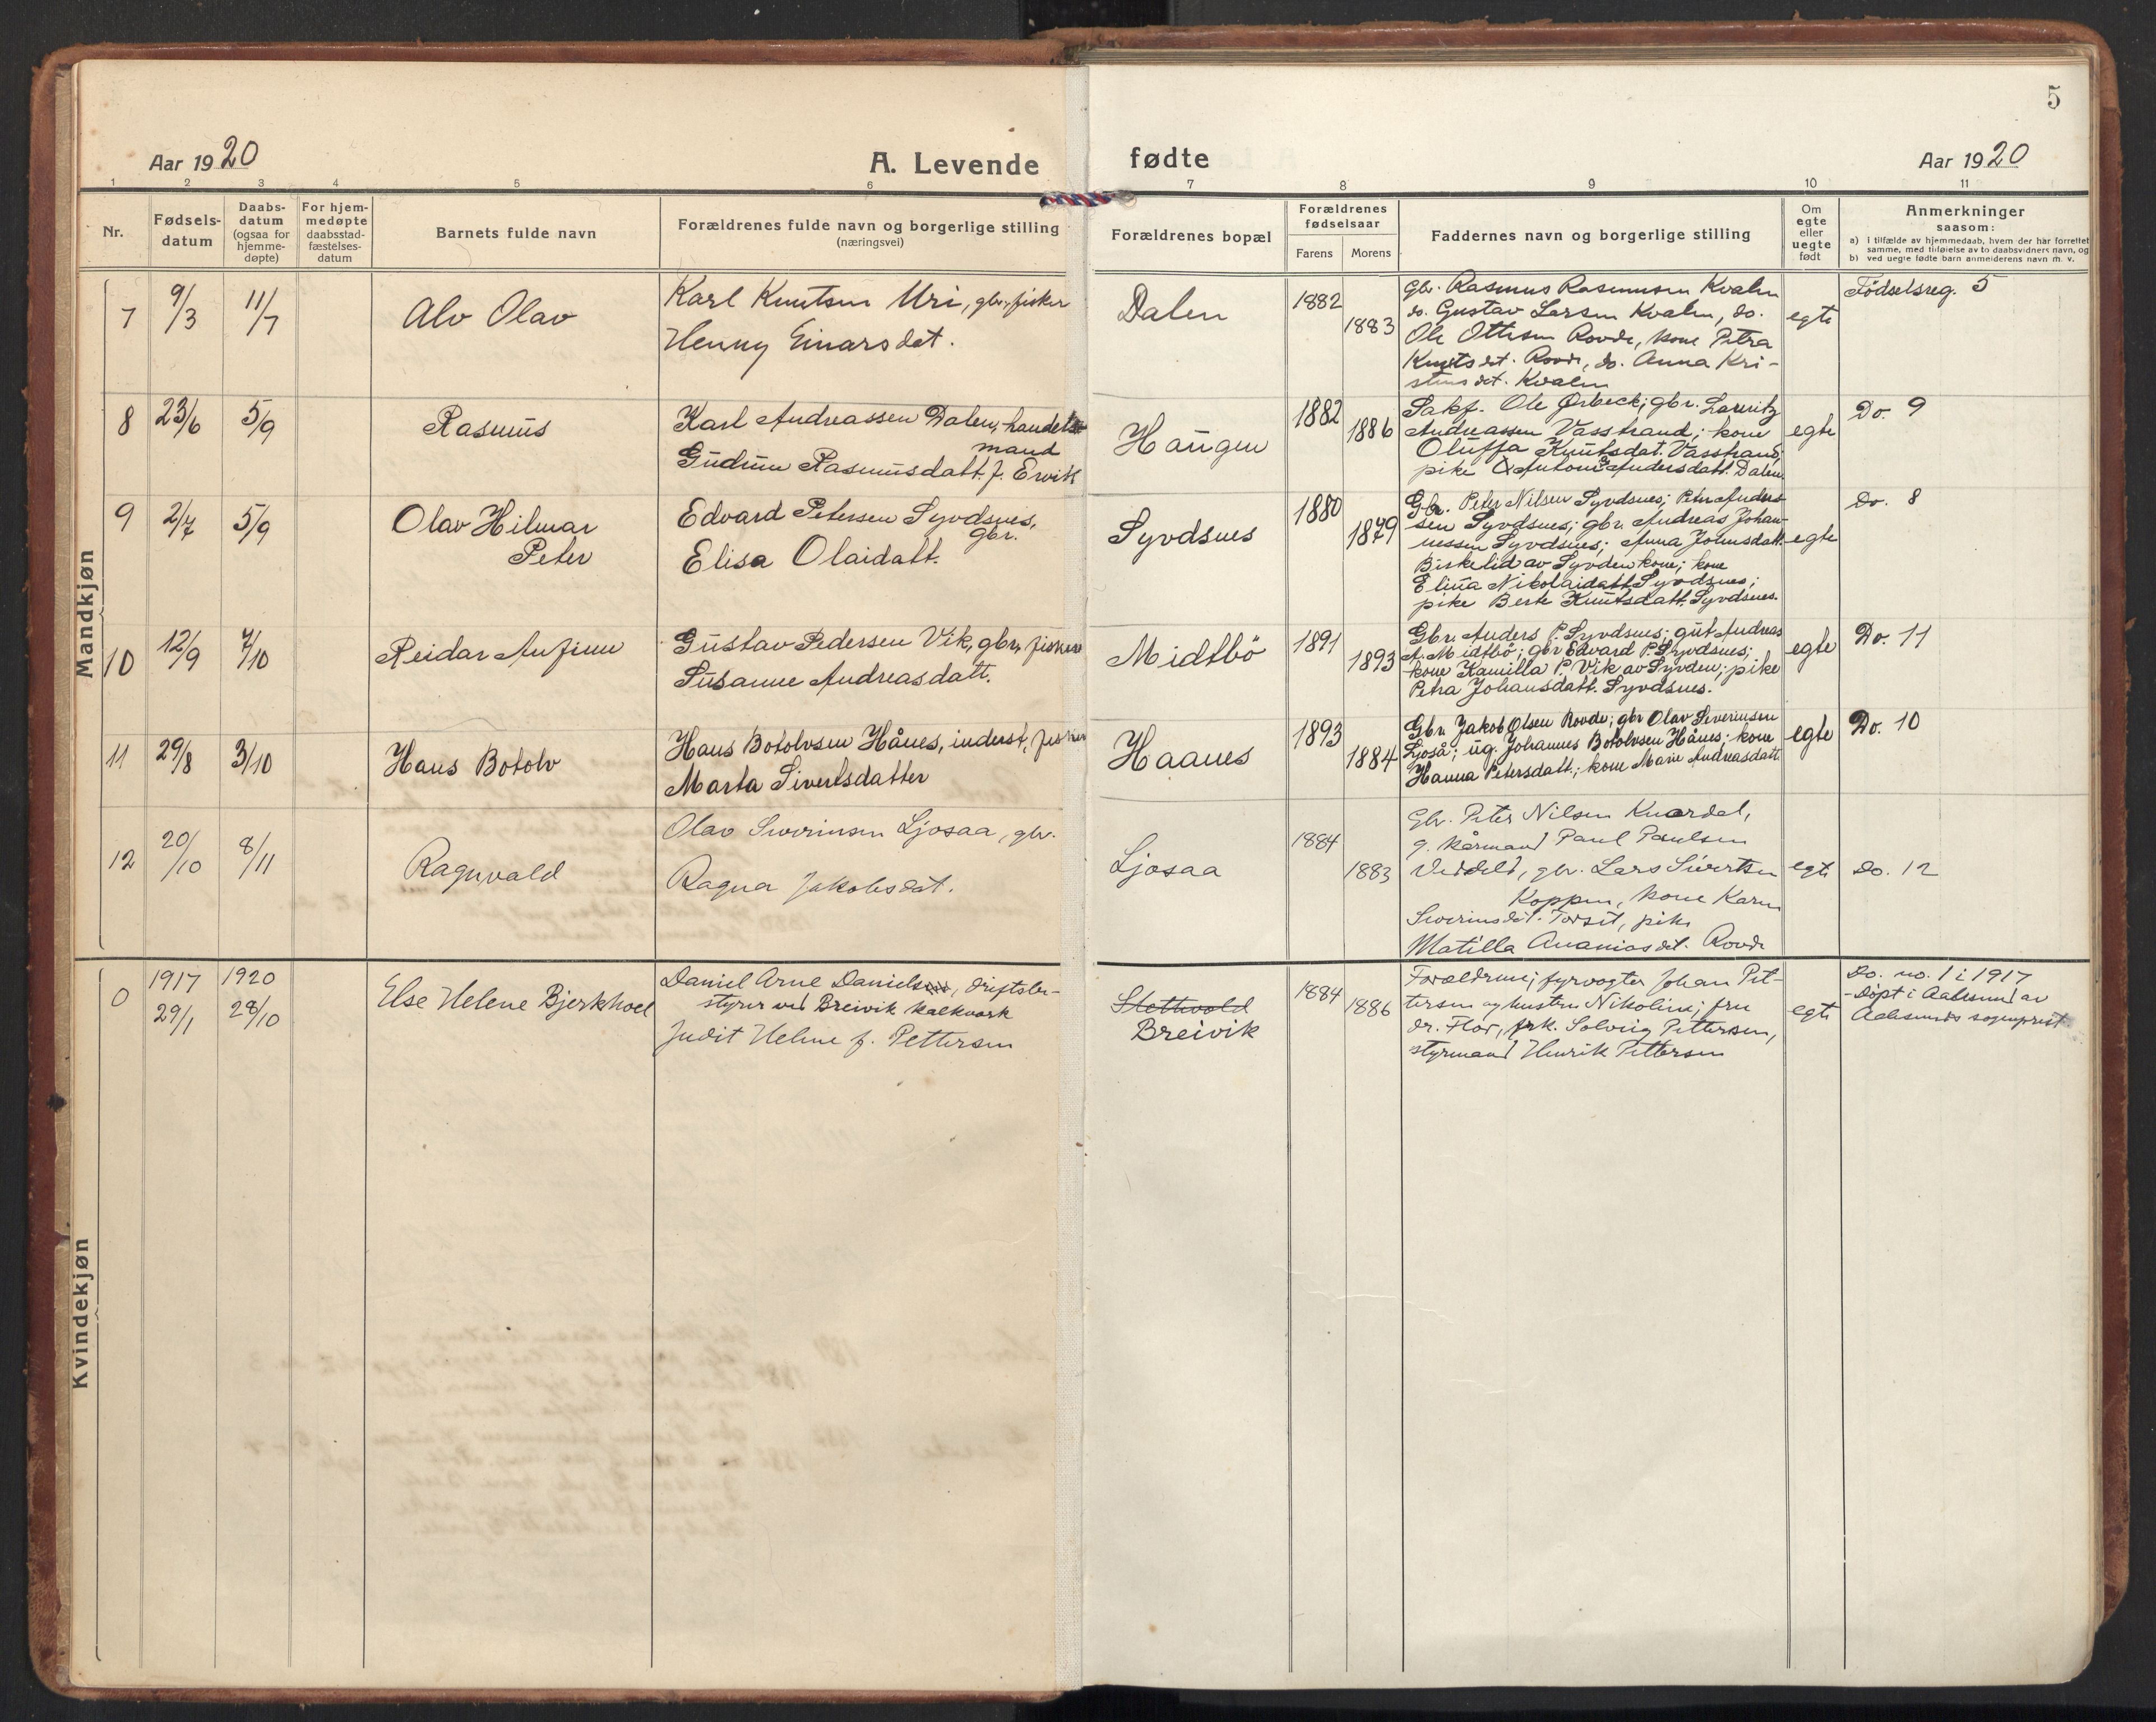 5
Aar 1920
A. Levende
fødte
Aar 1920
1 2 3 4 5 6 7 8 9 10 11
Nr.
Fødsels-
datum
Daabs-
datum
(ogsaa for
hjemme-
døpte)
For hjem-
medøpte
daabsstad-
fæstelses-
datum
Barnets fulde navn
Forældrenes fulde navn og borgerlige stilling
(næringsvei)
Forældrenes bopæl
Forældrenes
fødselsaar
Farens Morens
Faddernes navn og borgerlige stilling
Om
egte
eller
uegte
født
Anmerkninger
saasom:
a) i tilfælde av hjemmedaab, hvem der har forrettet
samme, med tilføielse av to daabsvidners navn, og
b) ved uegte fødte barn anmelderens navn m. v.
Mandkjøn
7 9/3 11/7 Alv Olav
Karl Knutsen Uri, gbr., fisker
Henny Einarsdat.
Dalen 1882 1883
Gbr. Rasmus Rasmussen Kvalen
do. Gustav Larsen Kvalen, do.
Ole Ottesen Rovde, kone Petra
Knutsdet. Rovde, do. Anna Kri-
stensdet. Kvalen
egte
Fødselsreg. 5
8 23/6 5/9 Rasmus
Karl Andreassen Dalen, handels
mand
Gudrun Rasmusdatt. f. Ervik
Haugen 1882 1886
Sakf. Ole Ørbeck; gbr. Lauritz
Andreassen Vasstrand; kone
Oluffa Knutsdat. Vasstrand;
pike Antonie Andersdatt. Dalen
egte
Do. 9
9 2/7 5/9 Olav Hilmar
Peter
Edvard Petersen Syvdsnes,
gbr.
Elisa Olaidatt.
Syvdsnes 1880 1879
Gbr. Peter Nilsen Syvdsnes; Peter Anders
sen Syvdsnes; gbr. Andreas Johan-
nessen Syvdsnes; Anna Jonnsdatt.
Birkelid av Syvden kone; kone
Elina Nikolaidatt. Syvdsnes;
pike Berte Knutsdatt. Syvdsnes.
egte
Do. 8
10 12/9 3/10 Reidar Anfinn
Gustav Pedersen Vik, gbr., fisker
Susanne Andreasdatt.
Midtbö 1891 1893
Gbr. Anders P. Syvdsnes; gut Andreas
A. Midtbö; gbr Edvard P. Syvdsnes;
kone Kamilla P. Vik av Syvden; pike
Petra Johansdatt. Syvdsnes.
egte
Do. 11
11 29/8 3/10 Hans Botolv
Hans Botolvsen Hånes, inderst, fisker
Marta Sivertsdatter
Haanes 1893 1884
Gbr. Jakob Olsen Rovde; gbr Olav Severinsen
Ljoså; ug. Johannes Botolvsen Hånes; kone
Hanna Petersdatt.; kone Marie Andreasdatt.
egte
Do. 10
12 20/10 8/11 Ragnvald
Olav Severinsen Ljosaa, gbr.
Ragna Jakobsdat.
Ljosaa 1884 1883
Gbr. Peter Nilsen Knardal,
g. kårmand Paul Paulsen
gbr. Lars Sivertsen
Koppen, kone Karen
Severinsdet. pike
Matilla Ananiasdet. Rovde
egte
Do. 12
Kvindekjøn
0 1917 29/1 1920 28/10 Else Helene Bjerkhoel
Daniel Arne Danielsen, driftsbe-
styrer ved Breivik kalkverk
Judit Helene f. Pettersen
Slettvold
Breivik
1884 1886
Forældrene; fyrvogter Johan Pet-
tersen og hustru Nikoline; fru
dr. Flor, frk. Solveig Pettersen,
styrmand Henrik Pettersen
egte
Do. no. 1 i 1917
- Døpt i Aalesund av
Aalesunds sogneprest